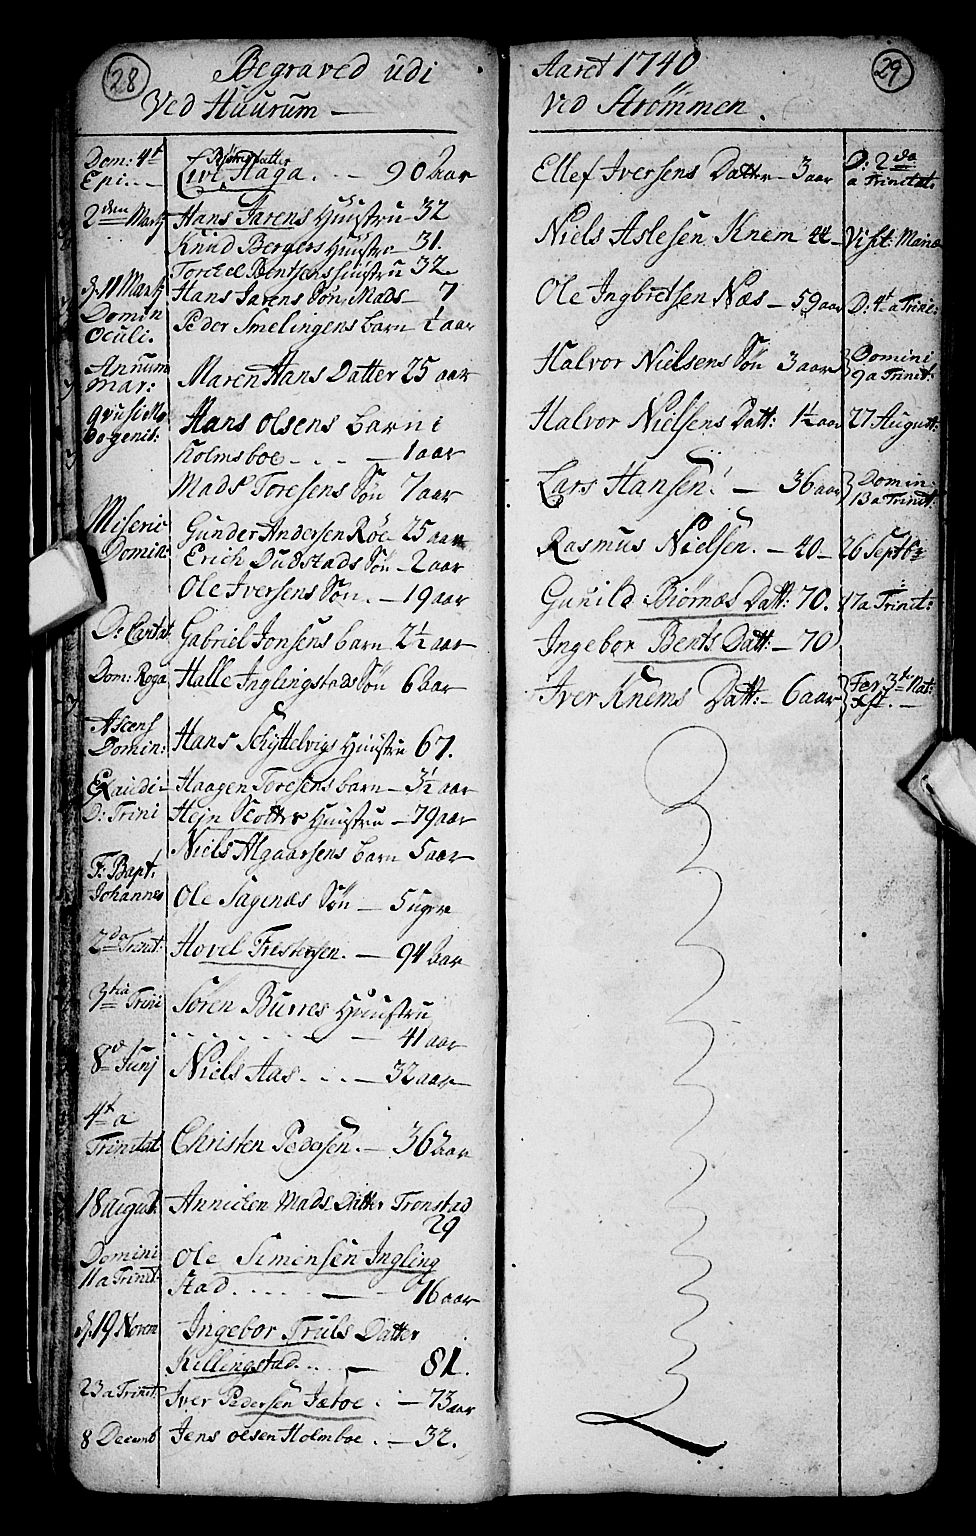 28
Begraved udi
Ved Huurum —
Dom: 4t Biørns datter
Epi... Live Haga. . - 90 aar
2den Martj Hans Jarens Huustru - 32
Knud Bergers Huustru - 31.
Torckel Bentsens Huustru 32
d. 11 Martj Hans Jarens Søn, Mads - 7
Domin Peder Smelingens barn - ½ aar
Oculi.
Annunt Maren Hans Datter 25 aar
Mar:
Hans Olsens barn i
dogenit: Holmsboe - . - - 1 aar
Mads Toresens Søn 7 aar
Miseric Gunder Andersen Røe 25 aar
Domin: Erich Dudstads Søn - 2 aar
Ole Iversens Søn. - 19 aar
D: Cantat Gabriel Jonsens barn 2½ aar
Dom: Roga Halle Inglingstads Søn 6 aar
Ascens
Domin: Hans Schyttelvigs Huustru 67.
Exaudi - Haagen Toresens barn - 3½ aar
D: Trini Hejn Scotter Huustru - 79 aar
Niels Algaarsens barn 5 aar
F: Bapt:
Johannes Ole Sagenæs Søn - 5 uger
2da Trinit: Hovel Frestensen. - 94 aar
3tia Trini Søren Burres Huustru
. . . . . . - 41 aar
8de Junj Niels Aas. . . - 32 aar
4ta
Trinitat Christen Pedersen. - 36 aar
18 august: Annichen Mads Datter Tronstad
29
Domini Ole Simensen Ingling
11 a Trinit: stad. . . . . - - 76 aar
d. 19 Novem Ingebor Truls Datter
Killingstad. . . - 81.
23 a Trinit: Iver Pedersen Jætoe: - 73 aar
8 Decemb Jens Olsen Holmboe. . - 32.
29
Aaret 1740
Ved Strømmen.
Ellef Iversens Datter - 3 aar D: 2da
a Trinitat:
Niels Aslesen Knem 44 - Visit: Mariæ
Ole Ingbretsen Næs - 59 aar D: 4ta Trini:
Halvor Nielsens Søn 3 aar Domini
9 a Trinit:
Halvor Nielsens Datt: 1½ aar 27 August:
Lars Hansen: - 36 aar Domin:
13 a Trinit:
Rasmus Nielsen. - 40 - 26 Septbr
Gunild Biørnæs Datt: 70. 17 a Trinit:
Ingebor Bents Datt: - 70
Iver Knems Datt: - 6 aar Fer: 3t Nat:
Xst. -